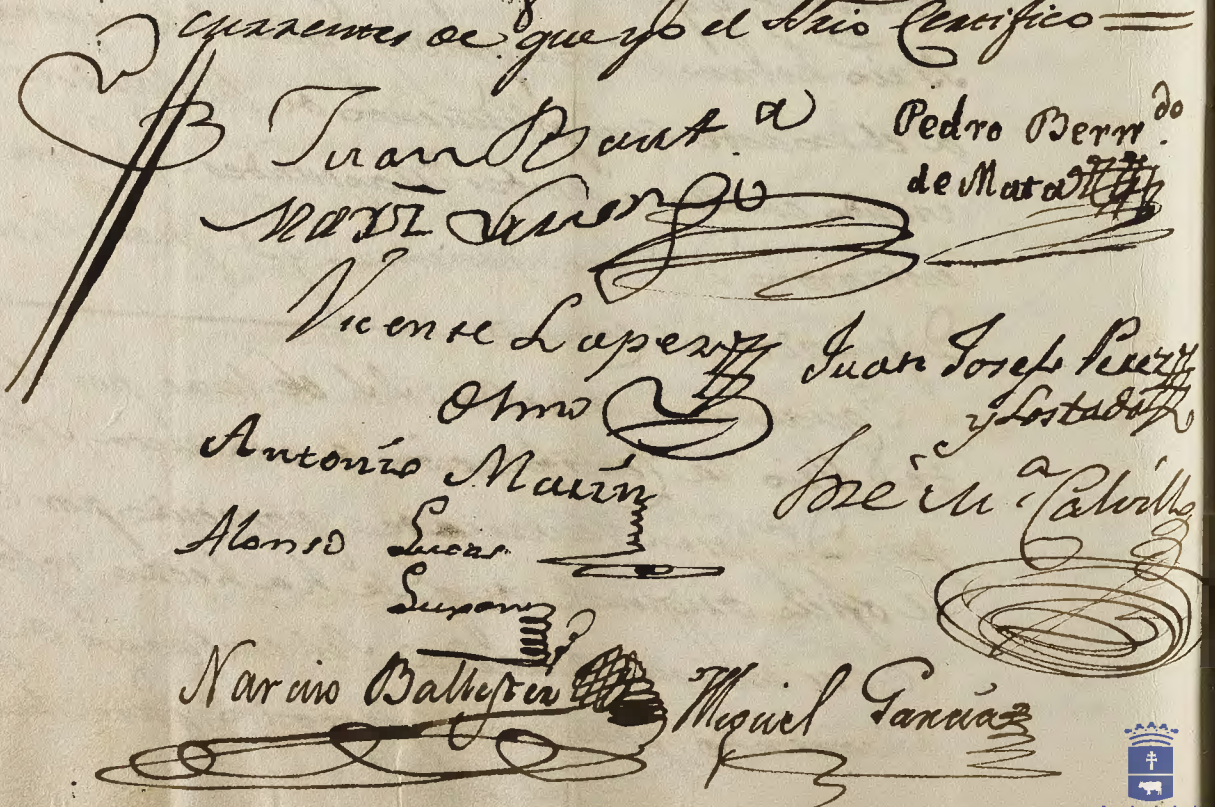 currentes de que yo el Srio Certifico
Juan Baut.a
Marz Cuenca
Pedro Bernrdo
de Mata
Vicente Lopez
Olmo
Juan Josef Perez
y Lostado
Antonio Marin
Jose M.a Calvillo
Alonso Lucas
Narciso Ballester
Miguel Garcia